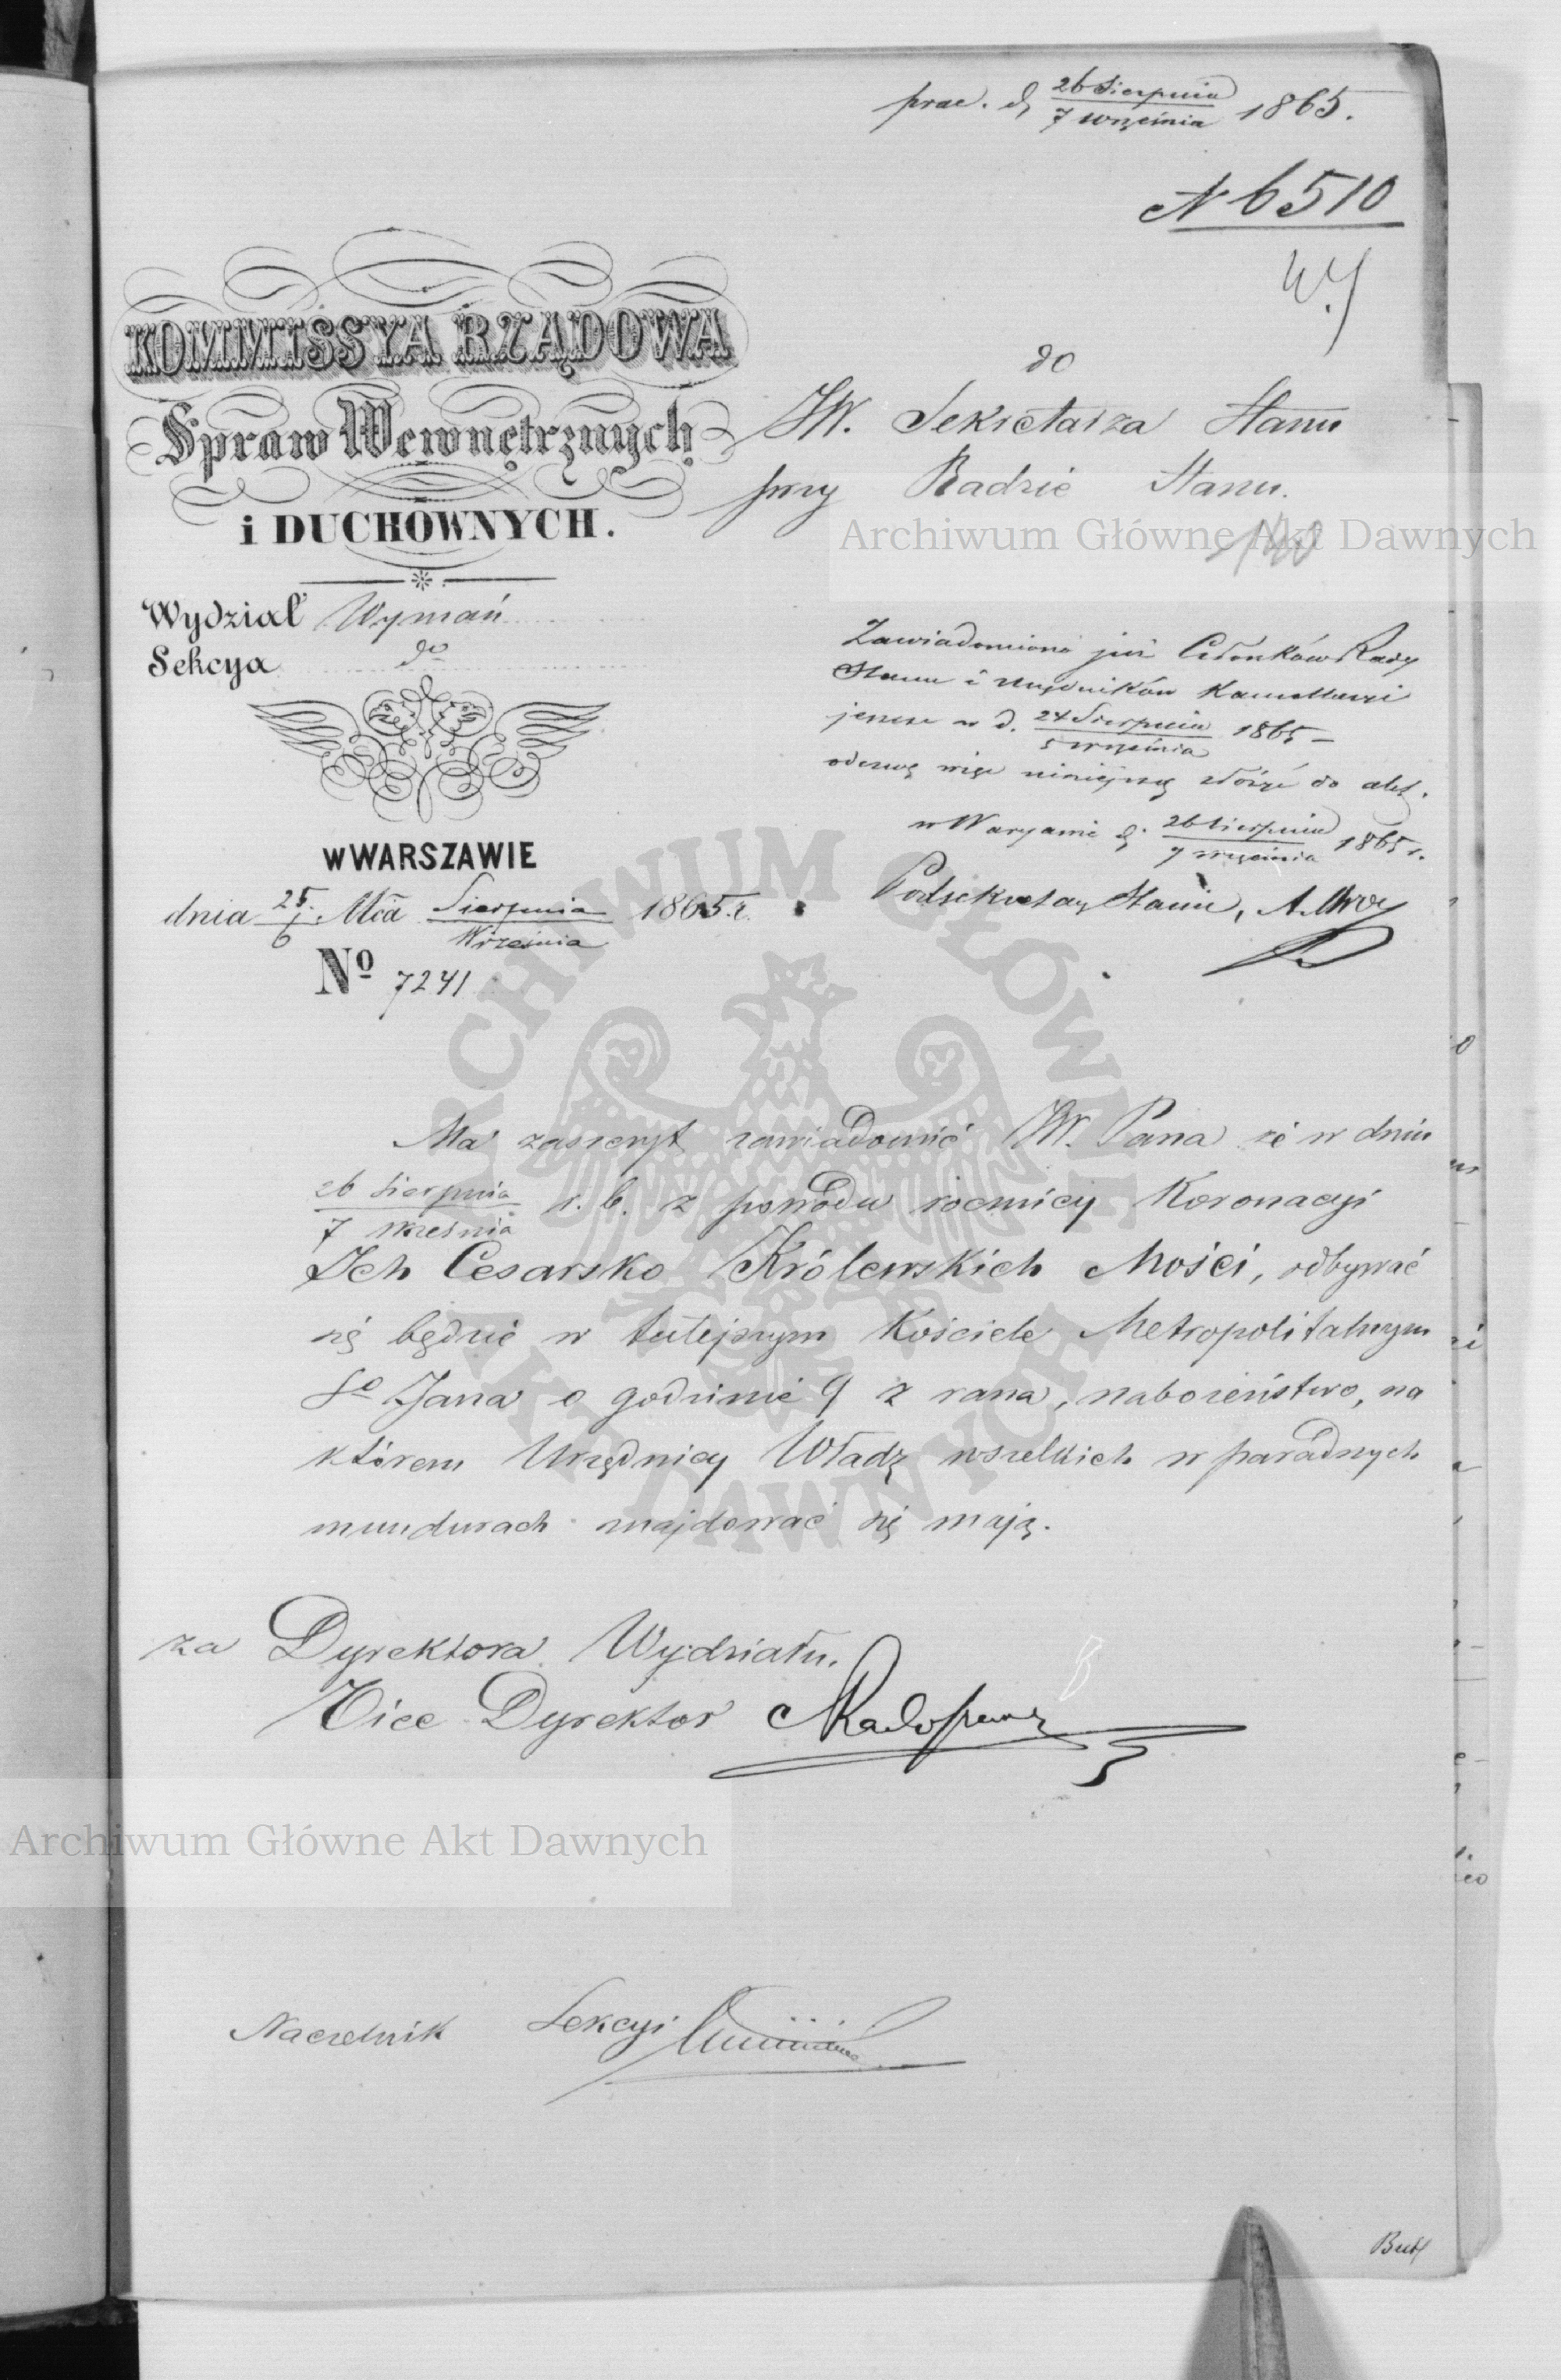 prae. d. 26 Sierpnia / 7 września 1865.
N 6510
KOMMISSYA RZĄDOWA
Spraw Wewnętrznych
i DUCHOWNYCH.
Wydział Wyznań
Sekcya do
w WARSZAWIE
dnia 25/6 Mca Sierpnia / Września 1865 r.
No 7241
do
JW. Sekretarza Stanu
przy Radzie Stanu.
Zawiadomiono już Członków Rady
Stanu i urzędników Kancellaryi
jeszcze w d. 24 Sierpnia / 5 września 1865 –
odezwę więc niniejszą złożyć do akt.
w Warszawie d. 26 Sierpnia / 7 września 1865 r.
Podsekretarz Stanu,
Ma zaszczyt zawiadomić JW. Pana że w dniu
26 Sierpnia / 7 Września r. b. z powodu rocznicy Koronacyi
Ich Cesarsko Królewskich Mości, odbywać
się będzie w tutejszym Kościele Metropolitalnym
So Jana o godzinie 9 z rana, nabożeństwo, na
którem Urzędnicy Władz wszelkich w paradnych
mundurach znajdować się mają.
za Dyrektora Wydziału.
Vice Dyrektor
Naczelnik Sekcyi
Archiwum Główne Akt Dawnych
Archiwum Główne Akt Dawnych
ARCHIWUM GŁÓWNE
AKT DAWNYCH